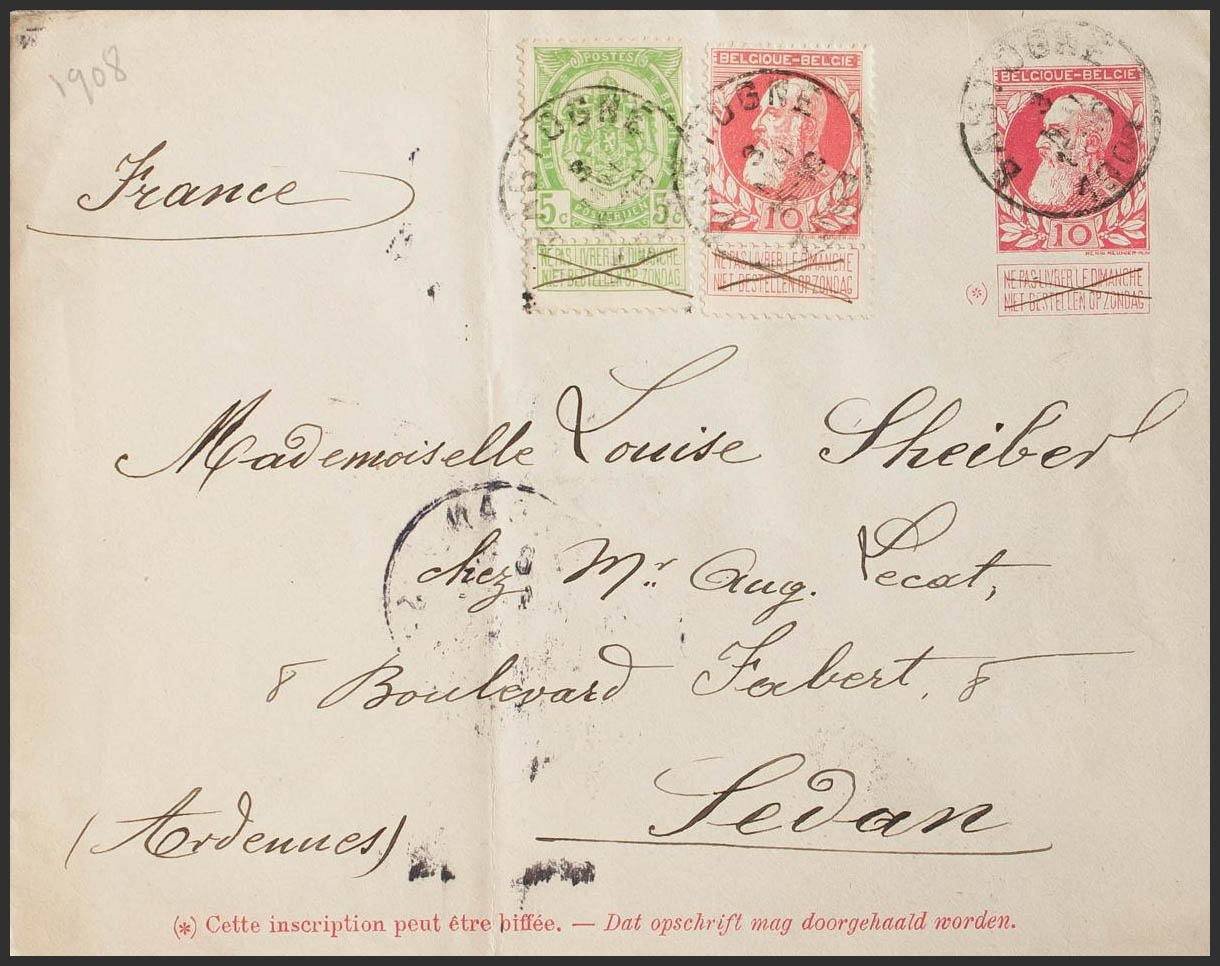 1908
POSTES
5c 5c
POSTERIJEN
NE PAS LIVRER LE DIMANCHE
NIET BESTELLEN OP ZONDAG
BELGIQUE-BELGIE
10
NE PAS LIVRER LE DIMANCHE
NIET BESTELLEN OP ZONDAG
BELGIQUE-BELGIE
10
NE PAS LIVRER LE DIMANCHE
NIET BESTELLEN OP ZONDAG
(*)
BASTOGNE
BASTOGNE
BASTOGNE
France
Mademoiselle Louise Sheiber
chez Mr Aug. Lecat,
8 Boulevard Fabert, 8
Sedan
(Ardennes)
(*) Cette inscription peut être biffée. — Dat opschrift mag doorgehaald worden.